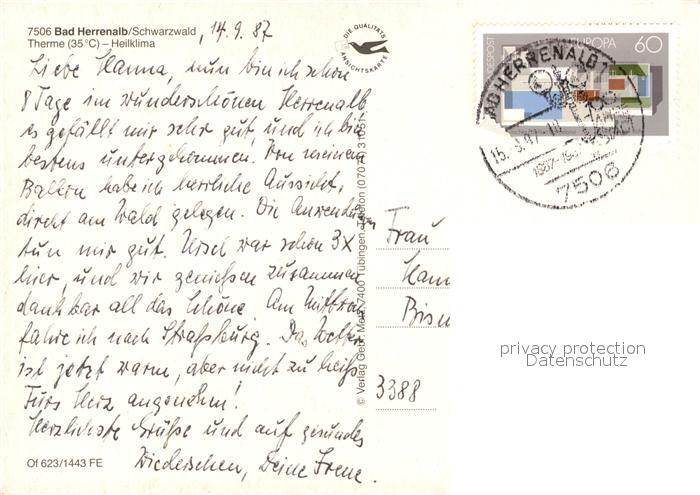 7506 Bad Herrenalb/Schwarzwald
Therme (35°C) – Heilklima
14.9.87
Liebe Hanna, nun bin ich schon
8 Tage im wunderschönen Herrenalb
es gefällt mir sehr gut, und ich bin
bestens untergekommen. Von meinem
Balkon habe ich herrliche Aussicht,
direkt am Wald gelegen. Die Anwendungen
tun mir gut. Ursel war schon 3x
hier, und wir genießen zusammen
dankbar all das Schöne. Am Mittwoch
fahre ich nach Straßburg. Das Wetter
ist jetzt warm, aber nicht zu heiß
Fürs Herz angenehm!
Herzlichste Grüße und auf gesundes
Wiedersehen, Deine Irene.
Of 623/1443 FE
DIE QUALITÄTS
ANSICHTSKARTE
© Verlag Gebr. Metz, 7400 Tübingen, Telefon (070 71) 3 10 51
BUNDESPOST
EUROPA
60
BAD HERRENALB 1
15.-9.87-10
7506
Frau
Hann
3388
privacy protection
Datenschutz